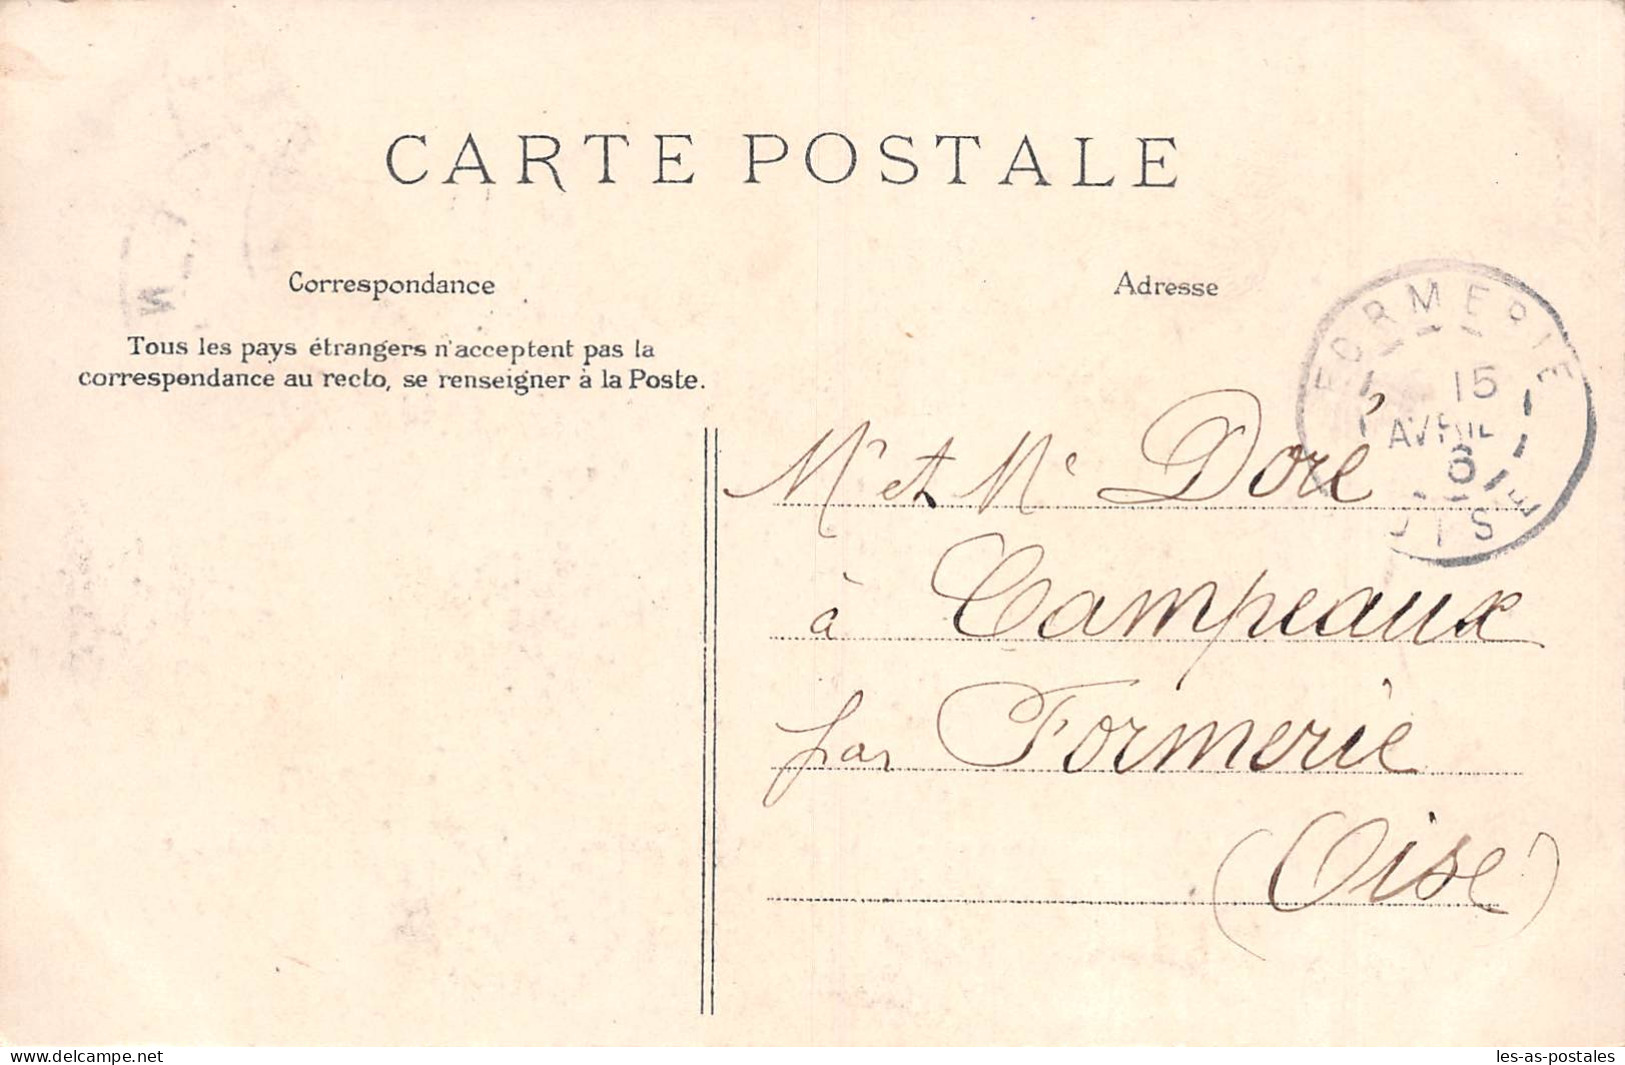 CARTE POSTALE
Correspondance
Tous les pays étrangers n'acceptent pas la
correspondance au recto, se renseigner à la Poste.
Adresse
FORMERIE
15
AVRIL
6
OISE
Mr et Me Doré
à Campeaux
par Formerie
(Oise)
www.delcampe.net
les-as-postales